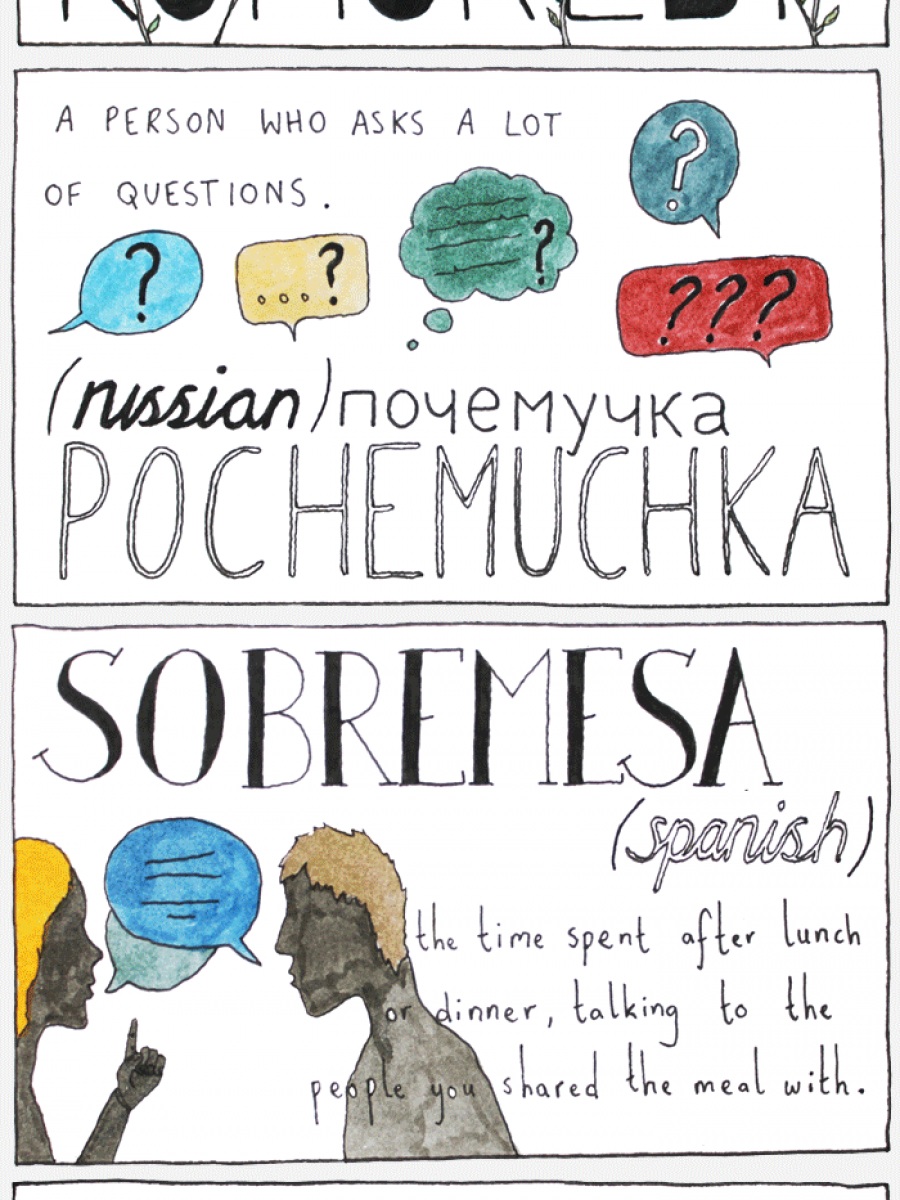 A PERSON WHO ASKS A LOT
OF QUESTIONS.
?
?
... ?
?
???
(russian) почемучка
POCHEMUCHKA
SOBREMESA
(spanish)
the time spent after lunch
or dinner, talking to the
people you shared the meal with.